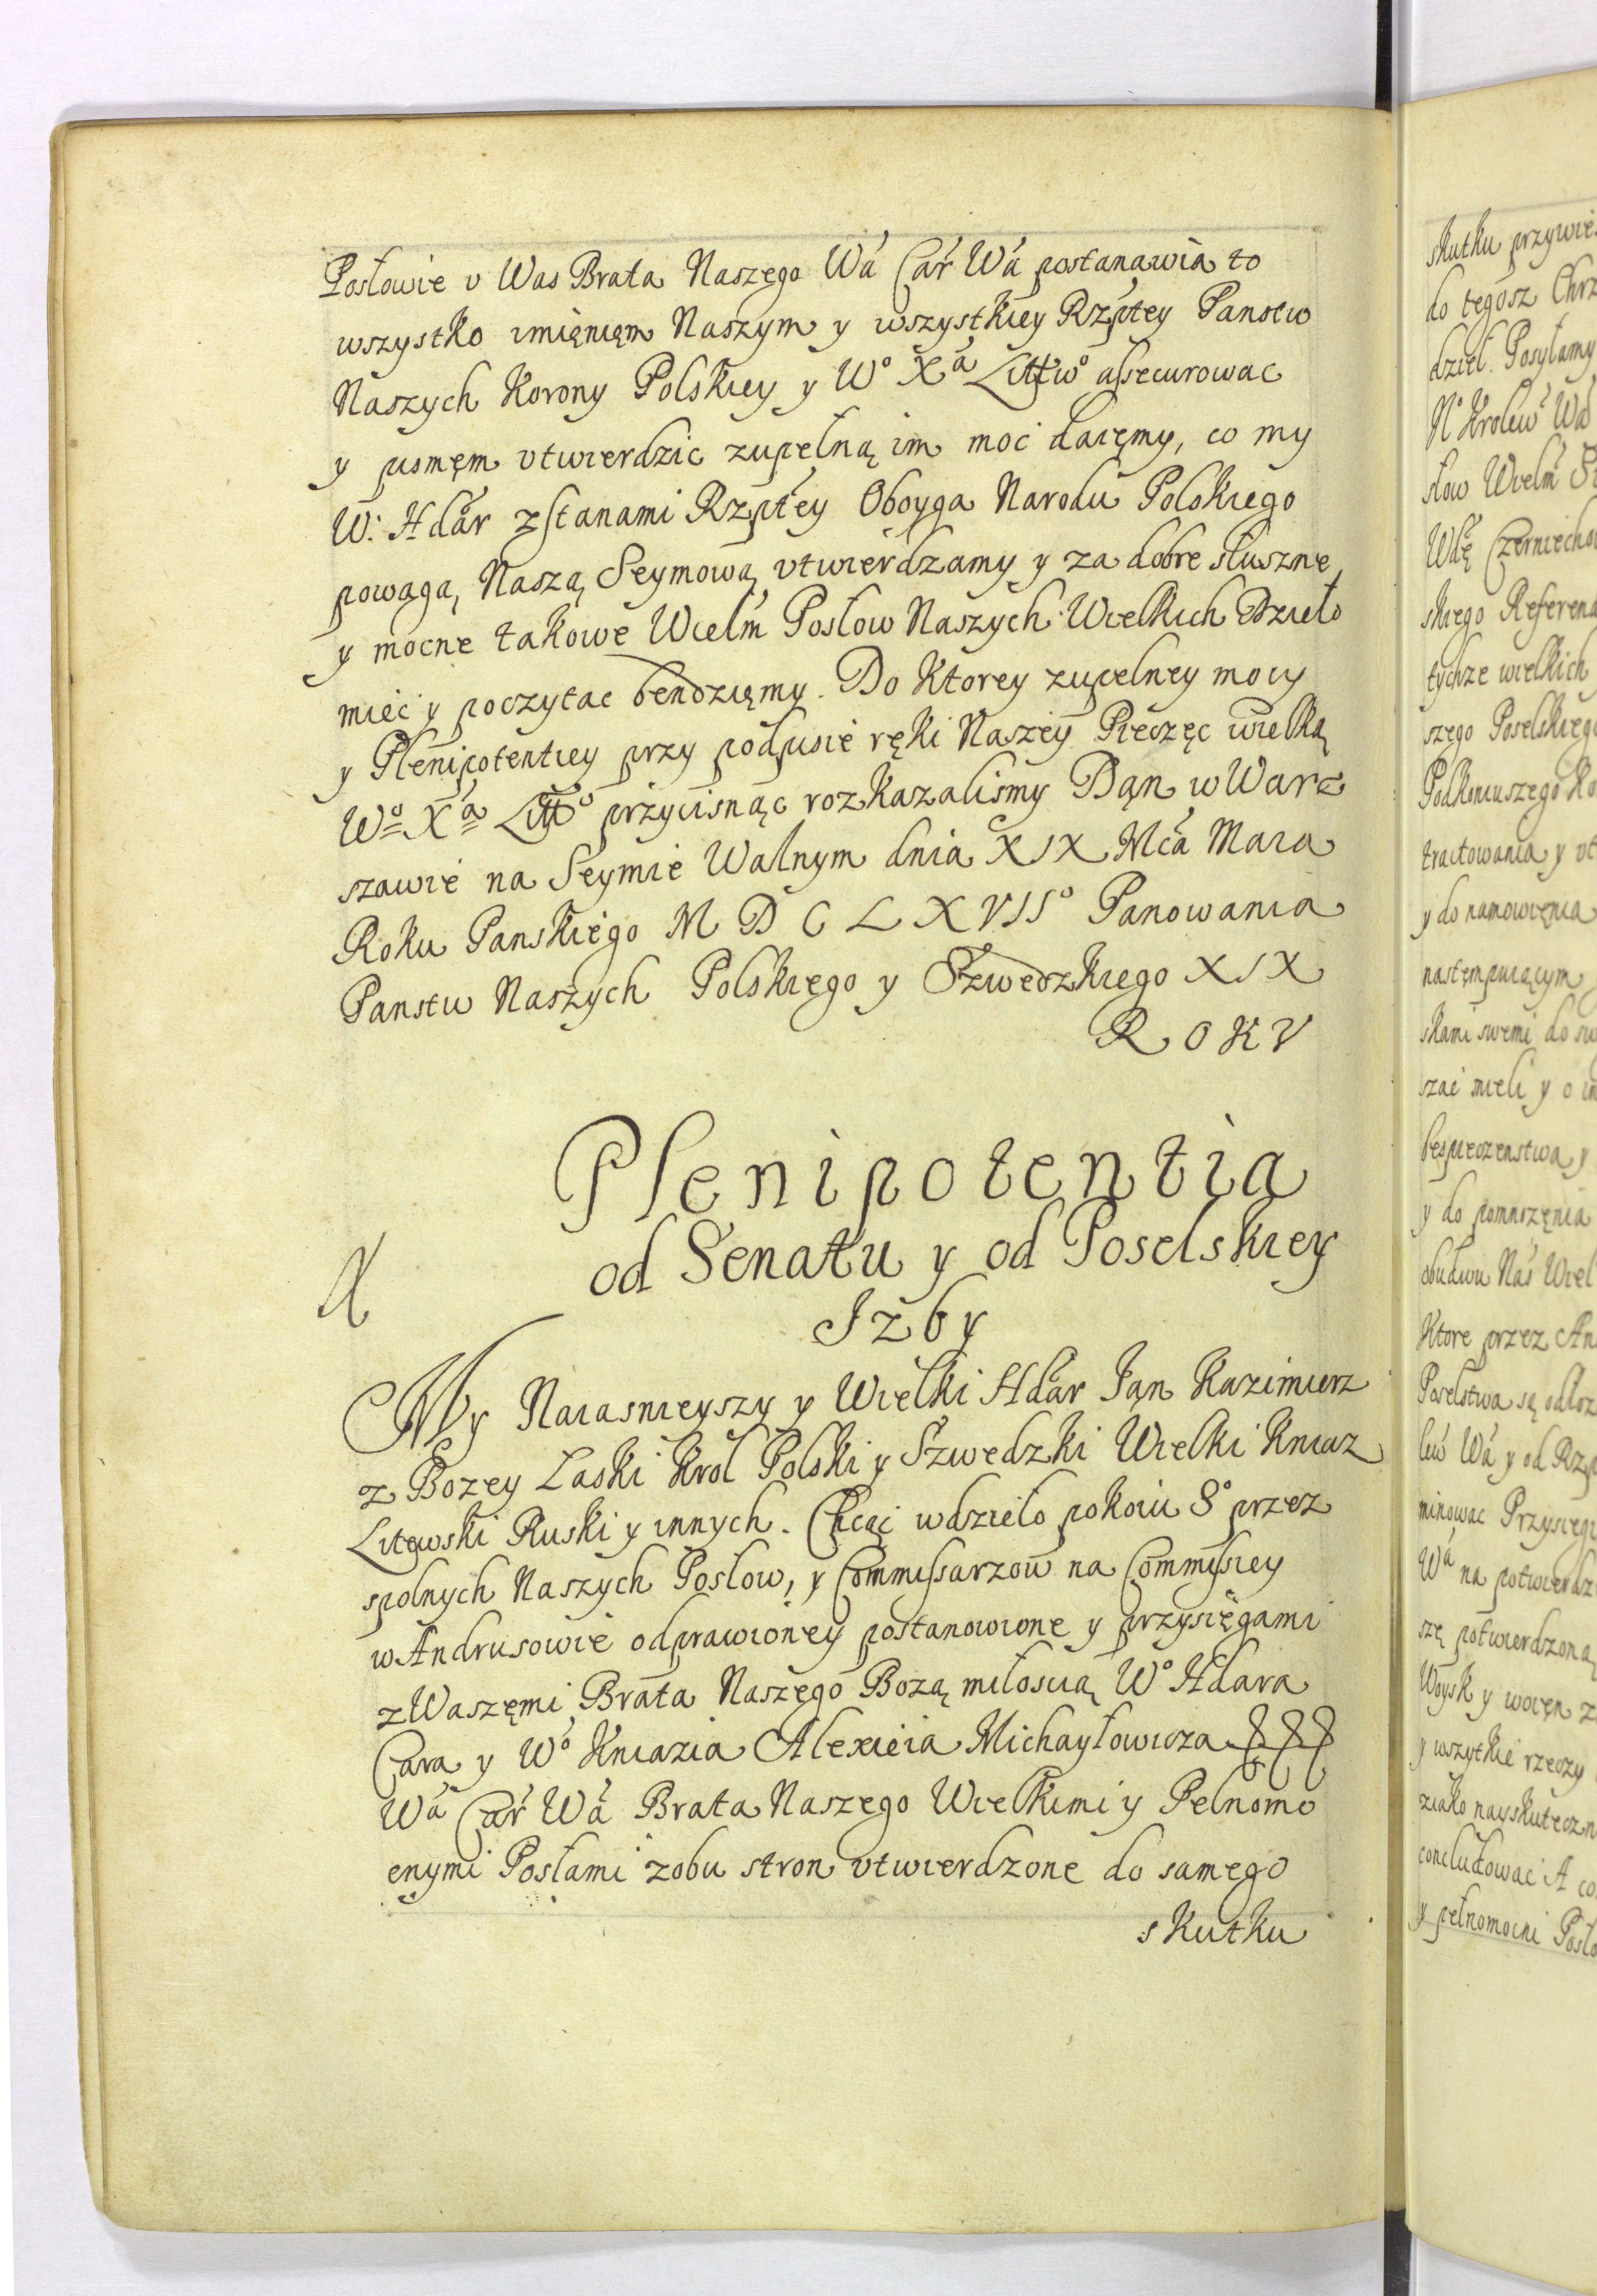 Posłowie v Was Brata Naszego Wá Cář Wá postanawia to
wszystko imięnięm Naszym y wszystkiey Rzptey Panstw
Naszych Korony Polskiey y Wº Xá Littwº assecurowac
y pismęm vtwierdzic zupełną im moc daięmy, co my
W: Hdář zstanami Rzptey Oboyga Narodu Polskiego
powagą Naszą Seymową vtwierdzamy y za dobre słuszne,
y mocne takowe Wielm Posłow Naszych Wielkich Dzieło
miec y poczytac bendzięmy. Do Ktorey zupelney mocy
y Plenipotentiey przy podpisie ręki Naszey Pieczęc wielką
Wº Xá Littº przycisnąc rozkazalismy Dąn w War=
szawie na Seymie Walnym dnia XIX Mcá Maia
Roku Panskiego M D C L X V I Iº Panowania
Panstw Naszych Polskiego y Szwedzkiego XIX
R O K V
Plenipotentia
od Senatu y od Poselskiey
Izby
My Naiasnieyszy y Wielki Hdář Ján Kazimierz
z Bozey Laski Krol Polski y Szwedzki Wielki Kniaz
Litewski Ruski y innych. Chcąc wdzieło pokoiu Sº przez
spolnych Naszych Posłow, y Commissarzow na Commyssiey
w Andrusowie odprawioney postanowione y przysięgami
z Waszęmi Brata Naszego Bozą miłoscią Wº Hdara
Cara y Wº Kniazia Alexieia Michayłowicza
Wá Cář Wá Brata Naszego Wielkimi y Pełnomo
cnymi Posłami zobu stron vtwierdzone do samego
skutku
skutku przywie
do tegosz Chrz
dzieł. Posyłamy
Nº Krolew Wá
słow Wielm
Wdę Czerniecho
skiego Referend
tychze wielkich
szego Poselskiego
Podkoniuszego Ko
tractowania y vt
y do namowienia
nastęmpuiącym
skami swemi do sw
szac mieli y o in
bespieczenstwa y
y do pomnozęnia
obudwu Nas Wiel
Ktore przez An
Poselstwa są odłoz
lew Wá y od Rzp
minowac Przysięgi
Wá na potwierdz
szę potwierdzoną
Woysk y wocęn z
y wszytkie rzeczy
ziako nayskuteczn
concludowac A co
y pełnomocni Posło